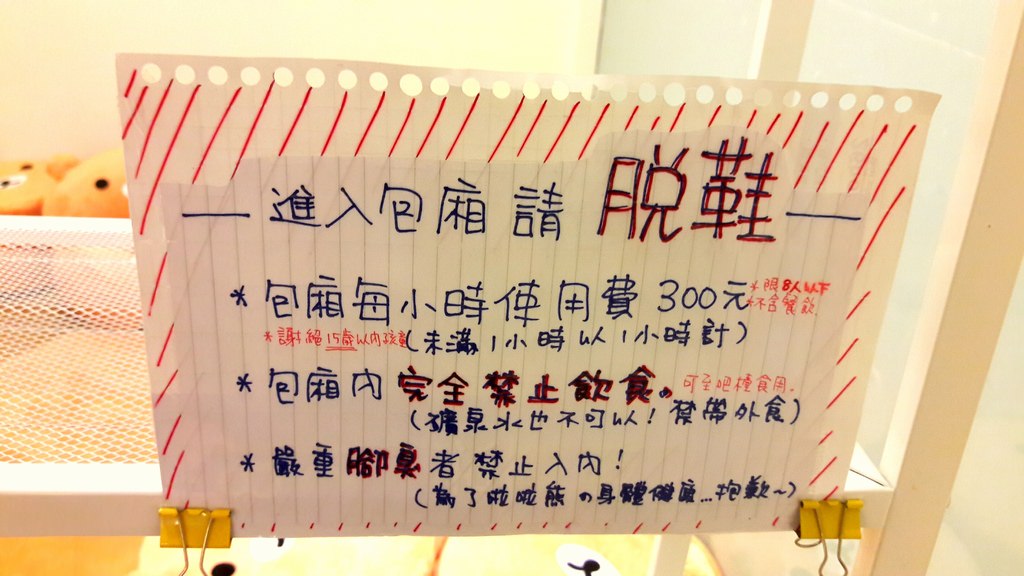 進入包廂請 脫鞋
* 包廂每小時使用費 300元 *限8人以下
*不含餐飲
*謝絕15歲以內孩童 (未滿1小時以1小時計)
* 包廂內 完全禁止飲食。可至吧檯食用。
(礦泉水也不可以! 禁帶外食)
* 嚴重腳臭者禁止入內!
(為了啦啦熊の身體健康...抱歉~)